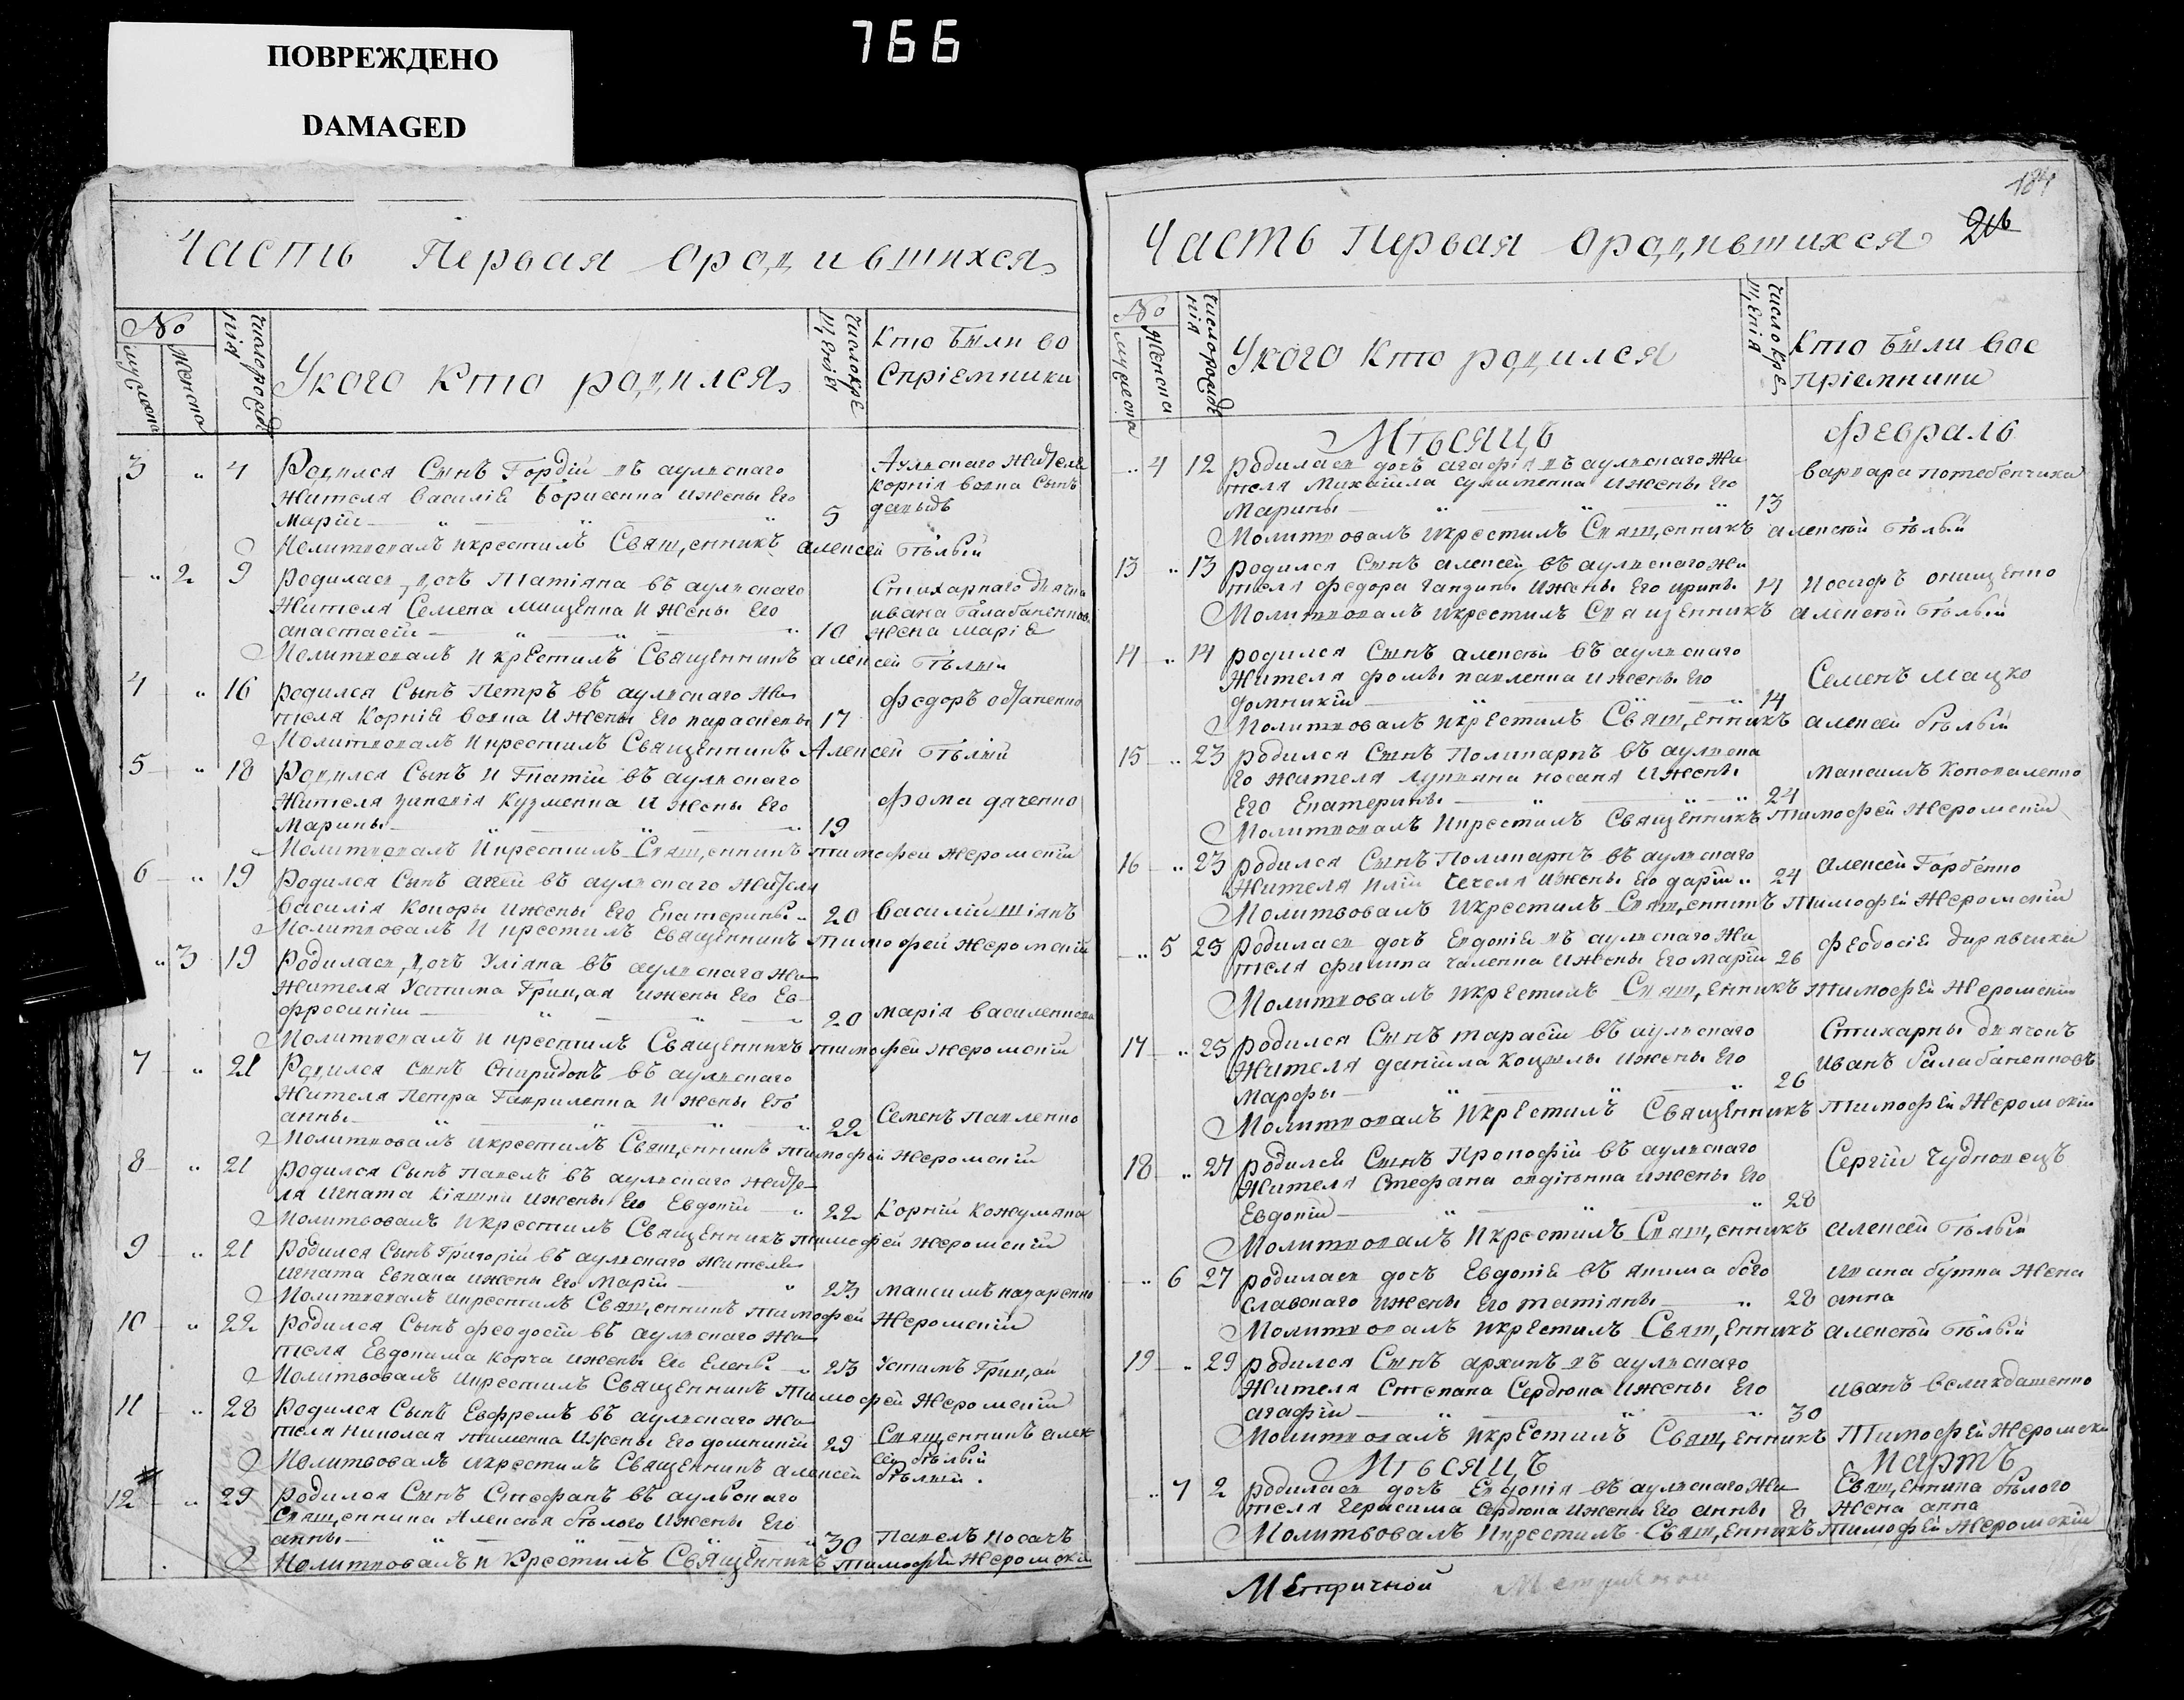 ПОВРЕЖДЕНО
DAMAGED
766
Часть Первая ородившихся
№
мужеска
женска
число рожде
нія
Укого Кто родился
число кре
щенія
Кто были во
спріемники
3 „ 4 Родился Сынъ Гордій въ аулскаго
Жителя василія Борисенка и жены Его
Маріи 5
Аулскаго Жителя
Корнія вовка Сынъ
давыдъ
Молитвовалъ икрестилъ Священникъ алексей бѣлый
„ 2 9 Родилась дочъ Татіяна въ аулскаго
Жителя Семена мищенка и жены Его
анастасіи 10
Стихарнаго дьячка
ивана балабаненкова
жена маріе
Молитвовалъ и крЕстилъ Священникъ алексей бѣлый
4 „ 16 родился Сынъ Петръ въ аулскаго Жи
теля Корніе вовка и жены Его параскевы 17
федоръ
Молитвовалъ икрестилъ Священникъ Алексей бѣлый
5 „ 18 Родился Сынъ игнатій въ аулскаго
Жителя зиновія Кузменка и жены Его
Марины 19
фома дяченко
Молитвовалъ икрестилъ Священникъ тимофей жеромскій
6 „ 19 Родился Сынъ аггей въ аулскаго жителя
василія Коноры ижены Его Екатерины 20
василій шіянъ
Молитвовалъ и крестилъ священникъ тимофей жеромскій
„ 3 19 Родилась дочъ Уліяна въ аулскаго жи
жителя Устима Грицая ижены Его Ев
фросиніи 20
марія василенкова
Молитвовалъ и крестилъ Священникъ тимофей жеромскій
7 „ 21 Родился сынъ Спиридонъ въ аулскаго
Жителя Петра Гавриленка и жены Его
анны 22
Семенъ Павленко
Молитвовалъ икрестилъ Священникъ тимофей жеромскій
8 „ 21 родился Сынъ павелъ въ аулскаго жите
ля игната Кіяшки ижены Его Евдокіи 22
Корній Кожумяка
Молитвовалъ икрестилъ Священникъ тимофей жеромскій
9 „ 21 Родился Сынъ Григорій въ аулскаго жителя
игната Евпака ижены Его Маріи 23
максимъ назаренко
Молитвовалъ икрестилъ Священникъ тимофей жеромскій
10 „ 22 родился Сынъ феодосій въ аулскаго жи
теля Евдокима Корча ижены Его Елены 23
Устимъ Грицай
Молитвовалъ икрестилъ Священникъ тимофей жеромскій
11 „ 28 Родился Сынъ Евфремъ въ аулскаго жи
теля николая тименка ижены Его домникіи 29
Священникъ алек
сей бѣлый
Молитвовалъ икрестилъ Священникъ алексей бѣлый
12 „ 29 родился Сынъ Стефанъ въ аулскаго
Священника Алексѣя бѣлого ижены Его
анны 30
Павелъ носачъ
Молитвовалъ и крестилъ Священникъ тимофѣй жеромскій
184
Часть Первая ородившихся
№
мужеска
женска
число рожде
нія
Укого Кто родился
число кре
щенія
Кто были вос
пріемники
Мѣсяцъ февраль
„ 4 12 родилась дочъ агафія въ аулскаго жи
теля Михайила сулименка ижены Его
Марины 13
варвара потебенчиха
Молитвовалъ икрестилъ Священникъ алексѣй бѣлый
13 „ 13 родился Сынъ алексей въ аулскаго жи
теля федора гандиы ижены Его ирины 14
иосифъ онищенко
Молитвовалъ икрестилъ Священникъ алексѣй бѣлый
14 „ 14 родился Сынъ алексѣй въ аулскаго
жителя фомы павленка ижены Его
домникіи 14
Семенъ мацко
Молитвовалъ икрЕстилъ Священникъ алексей бѣлый
15 „ 23 родился Сынъ Поликарпъ въ аулска
го жителя лукьяна носача ижены
Его Екатерины 24
максимъ Коноваленко
Молитвовалъ икрестилъ Священникъ тимофей жеромскій
16 „ 23 родился Сынъ Поликарпъ въ аулскаго
жителя иліи чечеля ижены Его даріи 24
алексей Горбенко
Молитвовалъ икрестилъ Священникъ тимофей жеромскій
„ 5 25 родилась дочъ Евдокіе въ аулскаго жи
теля филипа чаленка ижены Его маріи 26
феодосіе
Молитвовалъ икрЕстилъ Священникъ тимофей жеромскій
17 „ 25 родился Сынъ тарасій въ аулскаго
Жителя даніила Коцюлы ижены Его
Марфы 26
Стихарны дьячокъ
иванъ балабаненковъ
Молитвовалъ икрЕстилъ Священникъ тимофей жеромскій
18 „ 27 родился Сынъ Прокофій въ аулскаго
жителя Стефана авдіенка ижены Его
Евдокіи 28
Сергій чудновецъ
Молитвовалъ икрестилъ Священникъ алексей бѣлый
„ 6 27 родилась дочъ Евдокіе въ якима бого
славскаго ижены Его татіяны 28
ивана бутка жена
анна
Молитвовалъ икрЕстилъ Священникъ алексѣй бѣлый
19 „ 29 родился Сынъ архипъ въ аулскаго
жителя Степана Сердюка ижены Его
агафіи 30
иванъ великдашенко
Молитвовалъ икрЕстилъ Священникъ тимофей жеромски
Мѣсяцъ Мартъ
„ 7 2 родилась дочъ Евдокія въ аулскаго жи
теля герасима сердюка ижены Его анны 8
Священника бѣлого
жена анна
Молитвовалъ икрестилъ Священникъ тимофей жеромскій
МЕтричной
Метричной